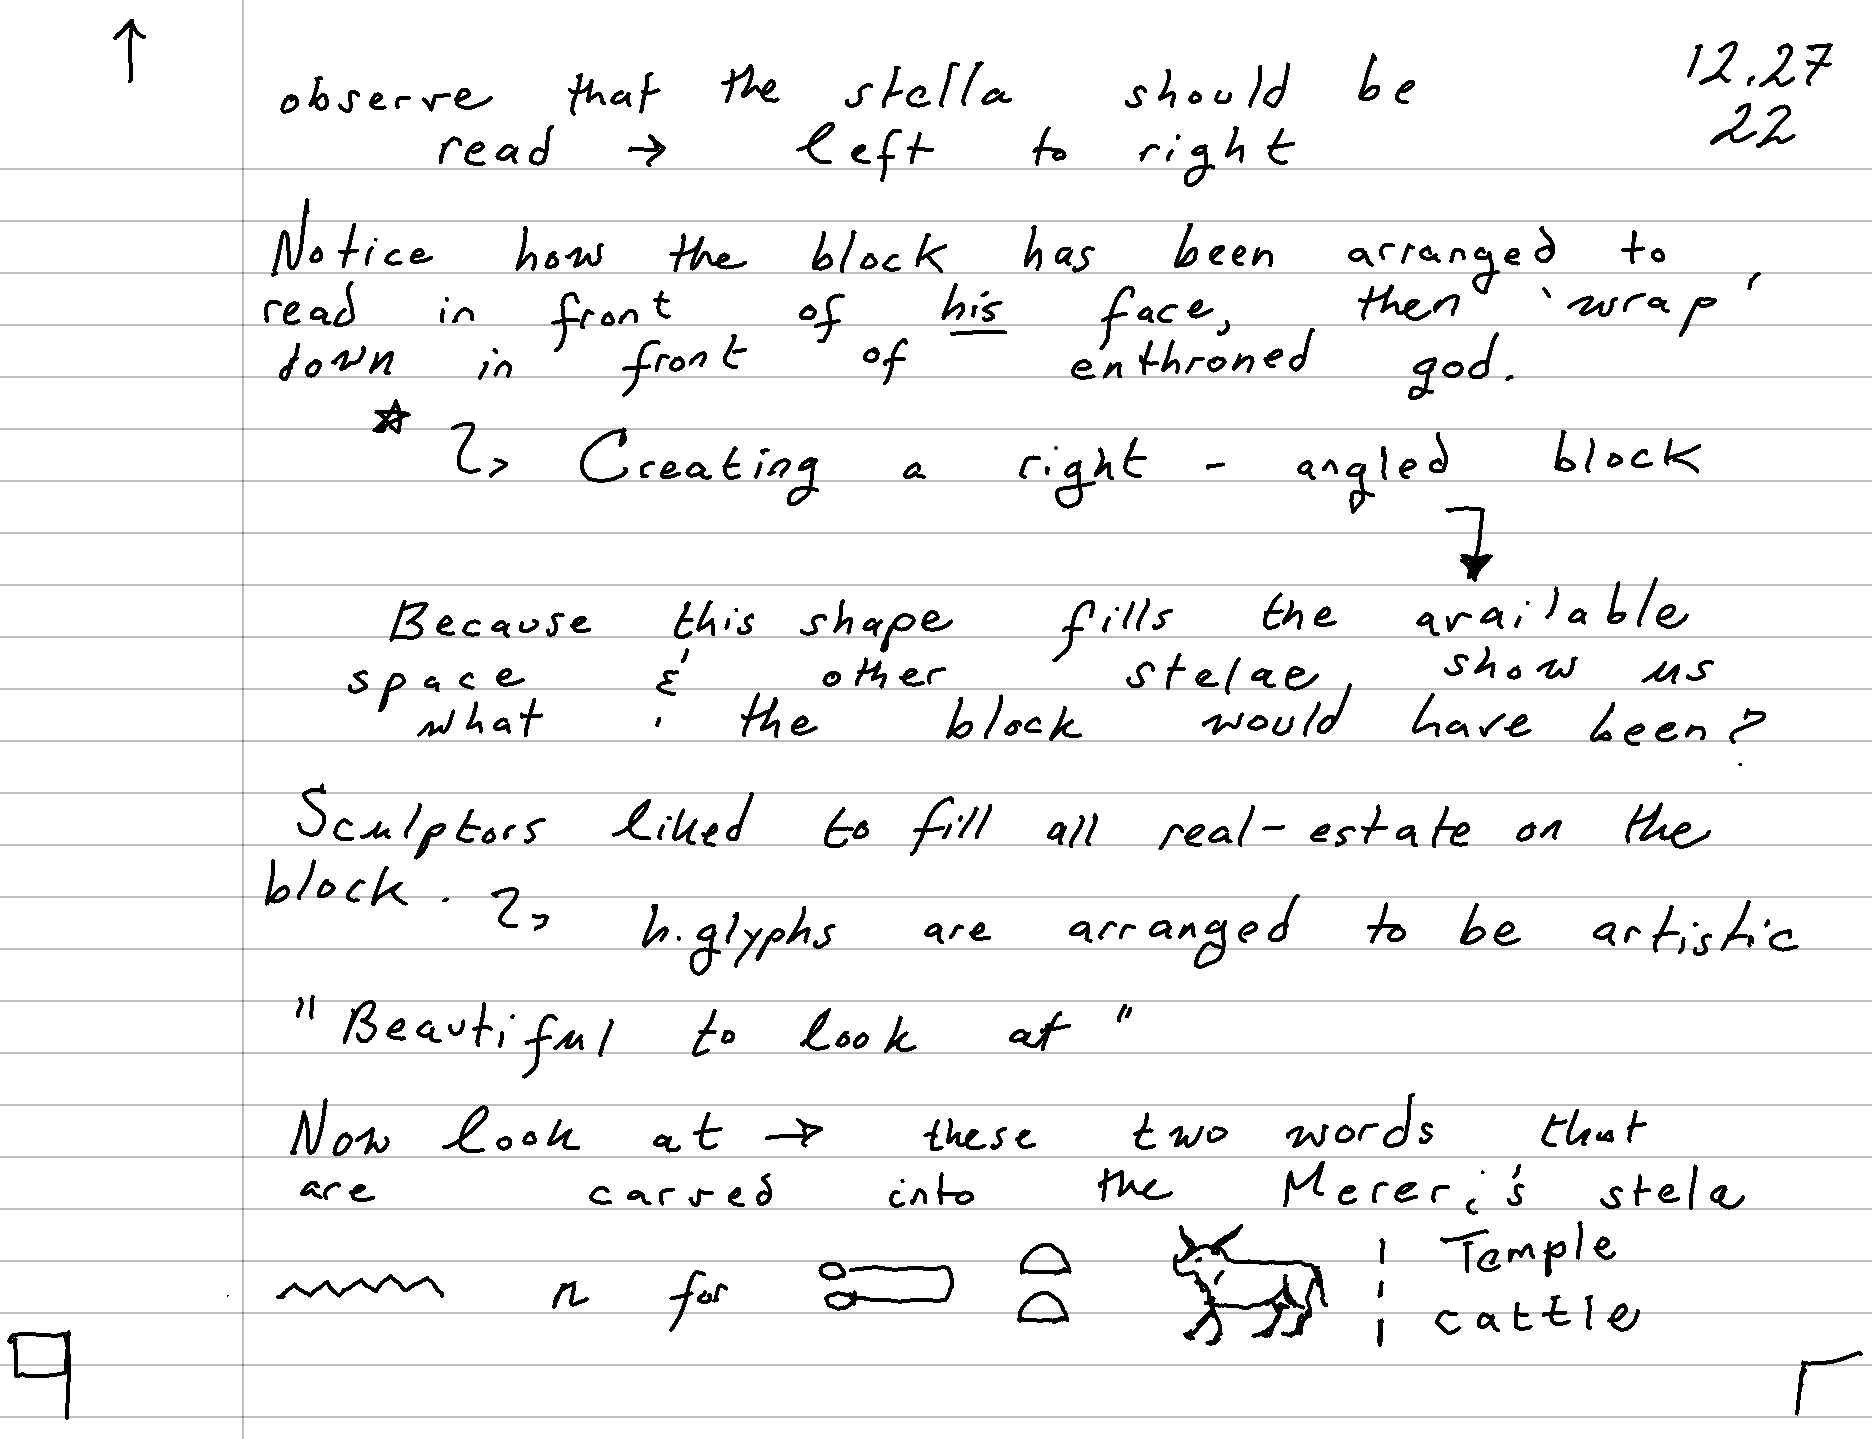 ↑
12.27
22
observe that the stella should be
read → left to right
Notice how the block has been arranged to
read in front of his face, then 'wrap'
down in front of enthroned god.
☆ ↳ Creating a right - angled block
Because this shape fills the available
space & other stelae show us
what the block would have been?
Sculptors liked to fill all real-estate on the
block. ↳ h.glyphs are arranged to be artistic
"Beautiful to look at"
Now look at → these two words that
are carved into the Mereri's stela
n for Temple
cattle